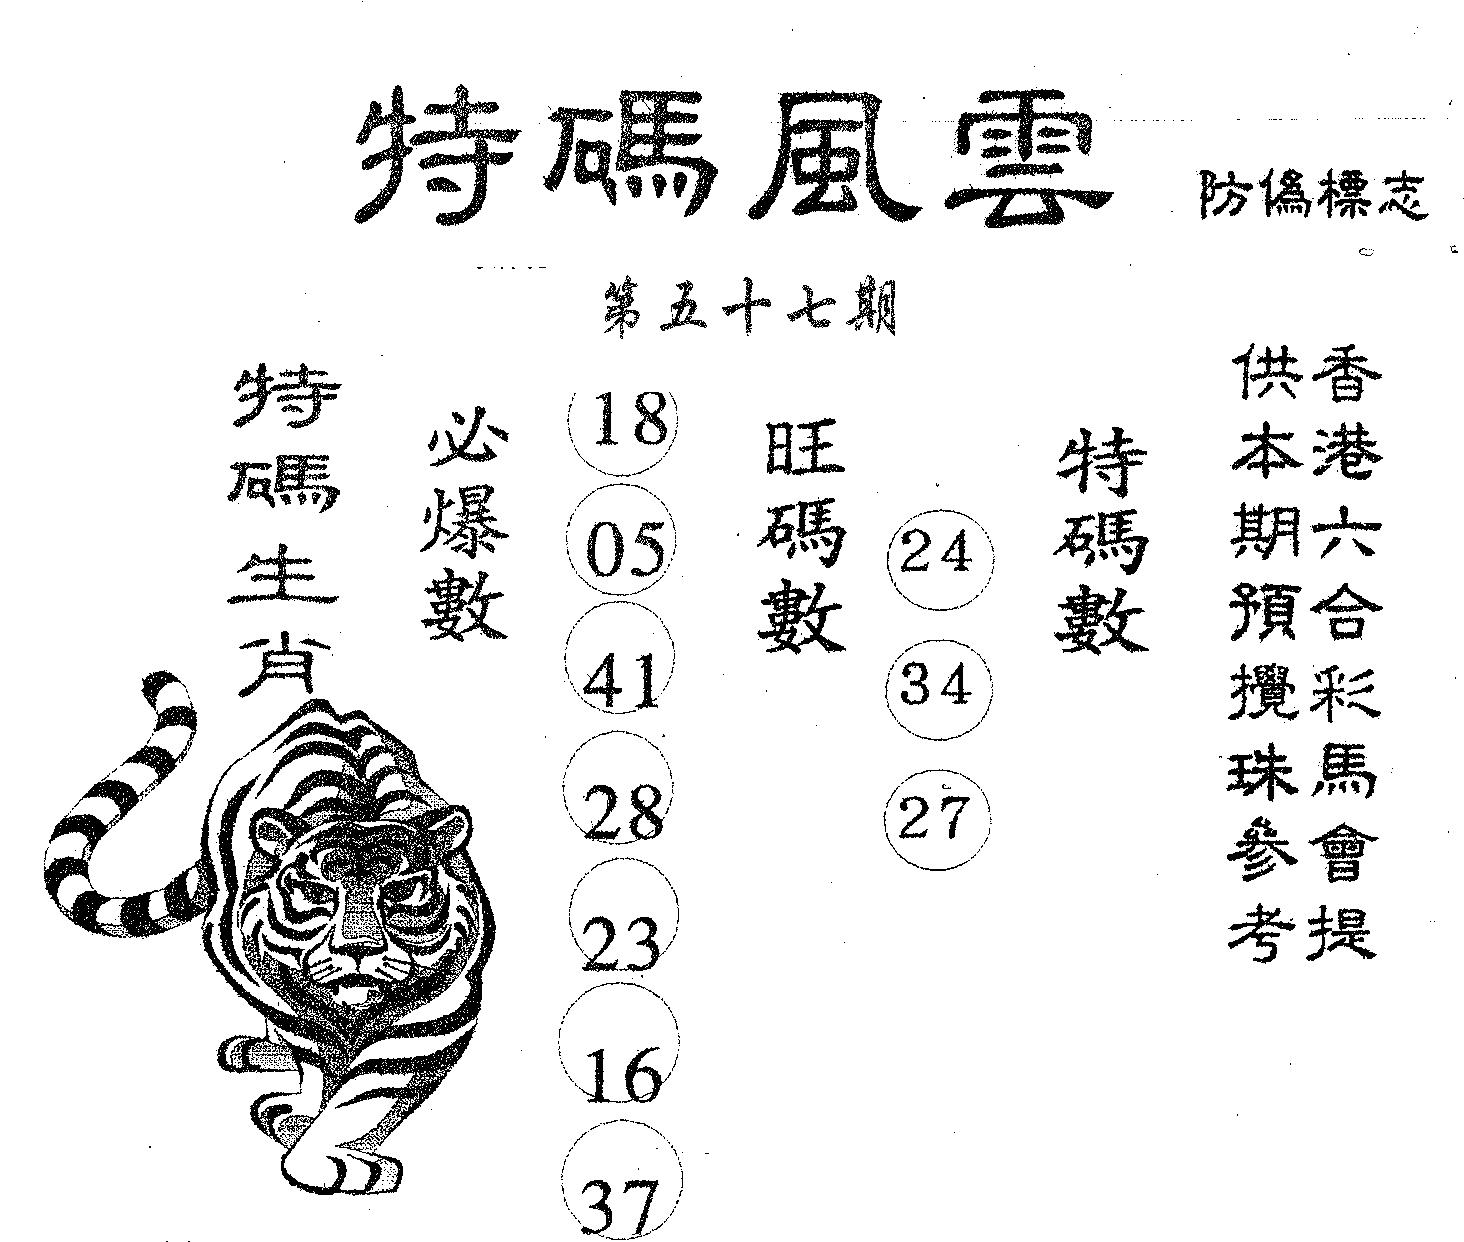 特碼風雲
防偽標志
第五十七期
香港六合彩馬會提
供本期預攪珠參考
特碼數
24
34
27
旺碼數
18
05
41
28
23
16
37
必爆數
特碼生肖